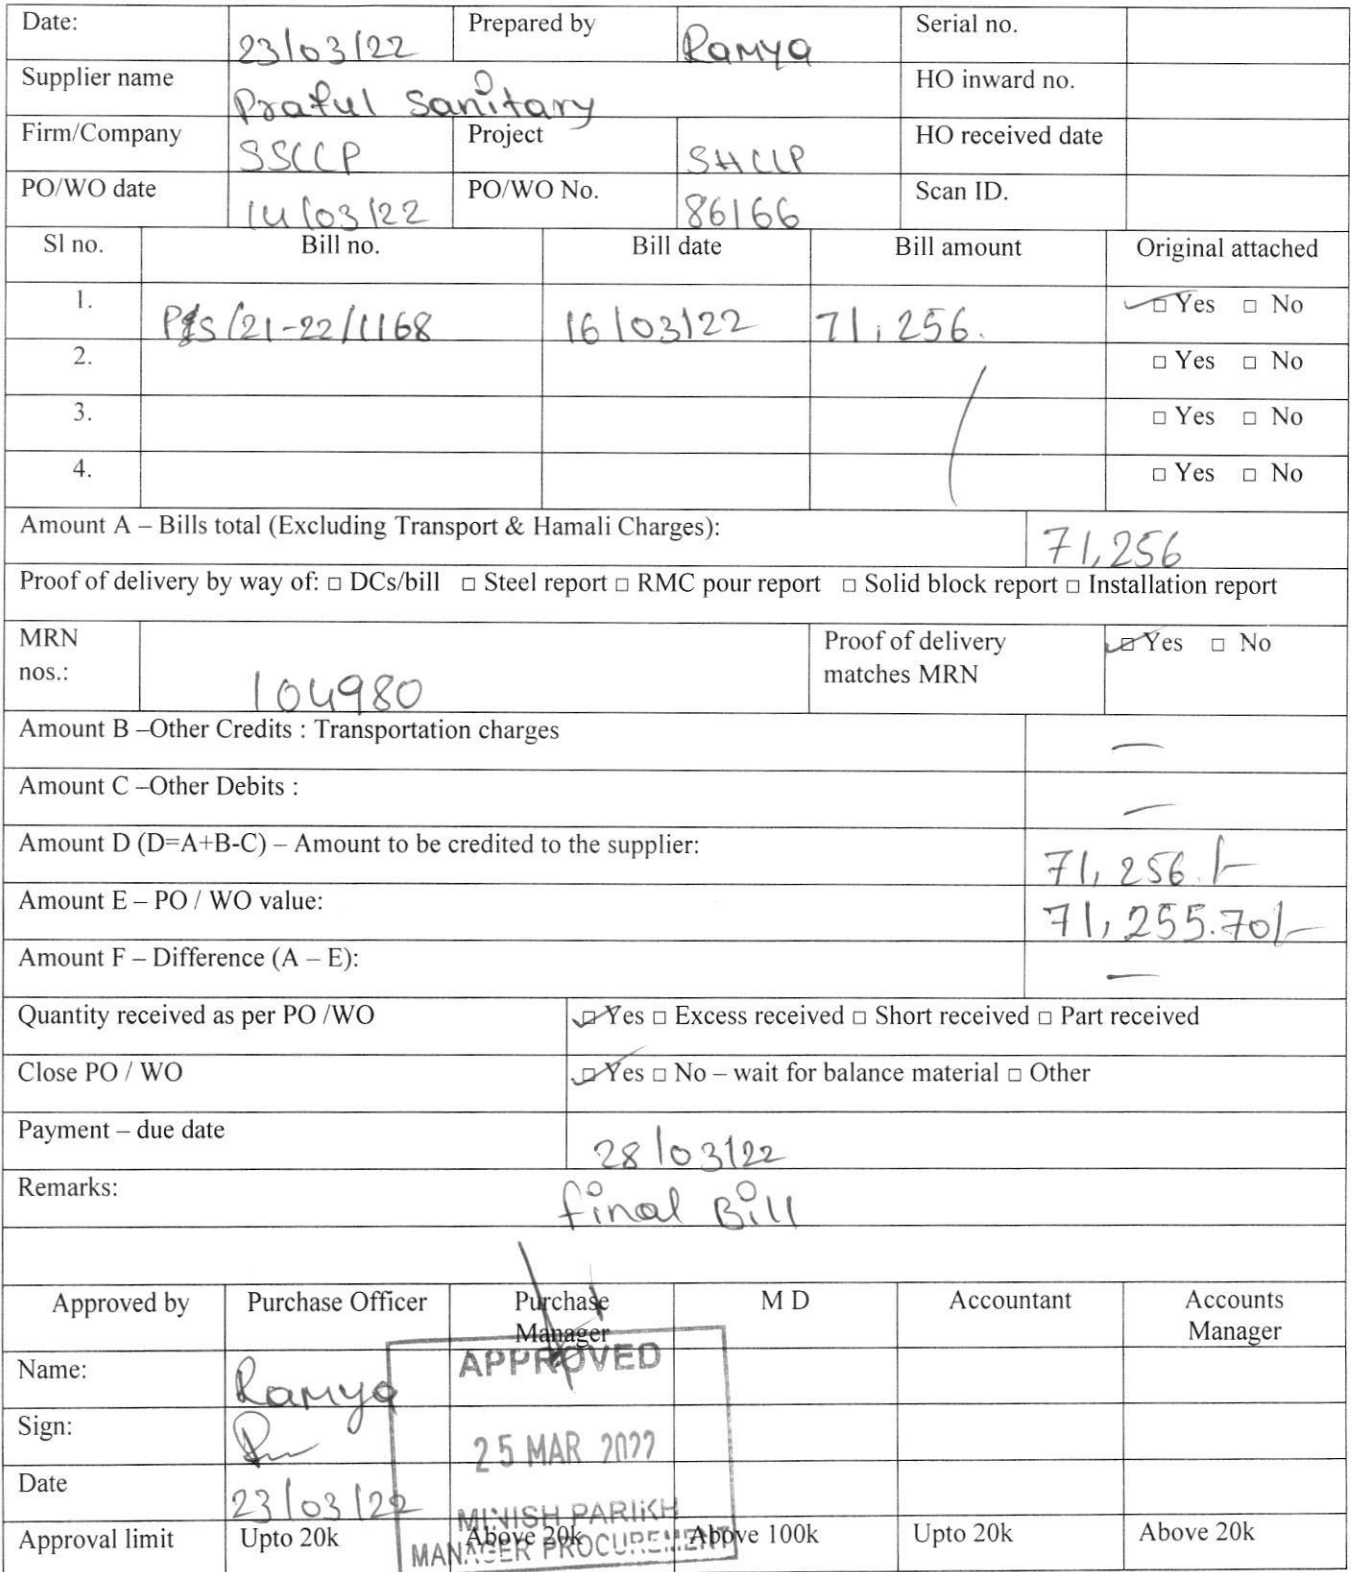 Date: 23/03/22 Prepared by Ramya Serial no.
Supplier name Praful Sanitary HO inward no.
Firm/Company SSCCP Project SHCLLP HO received date
PO/WO date 14/03/22 PO/WO No. 86166 Scan ID.
Sl no. Bill no. Bill date Bill amount Original attached
1. PS/21-22/1168 16/03/22 71,256. □ Yes □ No
2. □ Yes □ No
3. □ Yes □ No
4. □ Yes □ No
Amount A – Bills total (Excluding Transport & Hamali Charges): 71,256
Proof of delivery by way of: □ DCs/bill □ Steel report □ RMC pour report □ Solid block report □ Installation report
MRN nos.: 104980 Proof of delivery matches MRN □ Yes □ No
Amount B –Other Credits : Transportation charges —
Amount C –Other Debits : —
Amount D (D=A+B-C) – Amount to be credited to the supplier: 71,256./-
Amount E – PO / WO value: 71,255.70/-
Amount F – Difference (A – E): —
Quantity received as per PO /WO □ Yes □ Excess received □ Short received □ Part received
Close PO / WO □ Yes □ No – wait for balance material □ Other
Payment – due date 28/03/22
Remarks: final Bill
Approved by Purchase Officer Purchase Manager M D Accountant Accounts Manager
APPROVED
Name: Ramya
Sign:
25 MAR 2022
Date 23/03/22
MINISH PARIKH
Approval limit Upto 20k Above 20k Above 100k Upto 20k Above 20k
MANAGER PROCUREMENT